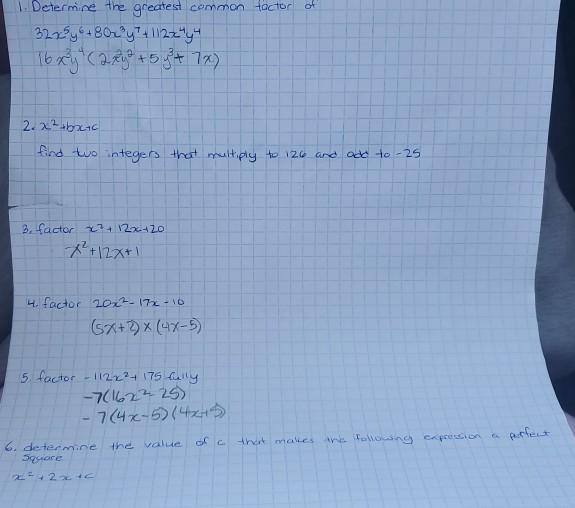 1. Determine the greatest common factor of
32x⁵y⁶+80x³y⁷+112x⁴y⁴
16x³y⁴(2x²y²+5y³+7x)
2. x²+bx+c
find two integers that multiply to 126 and add to -25
3. factor x²+12x+20
x²+12x+1
4. factor 20x²-17x-10
(5x+2)×(4x-5)
5. factor -112x²+175 fully
-7(16x²-25)
-7(4x-5)(4x+5)
6. determine the value of c that makes the following expression a perfect
square
x²+2x+c